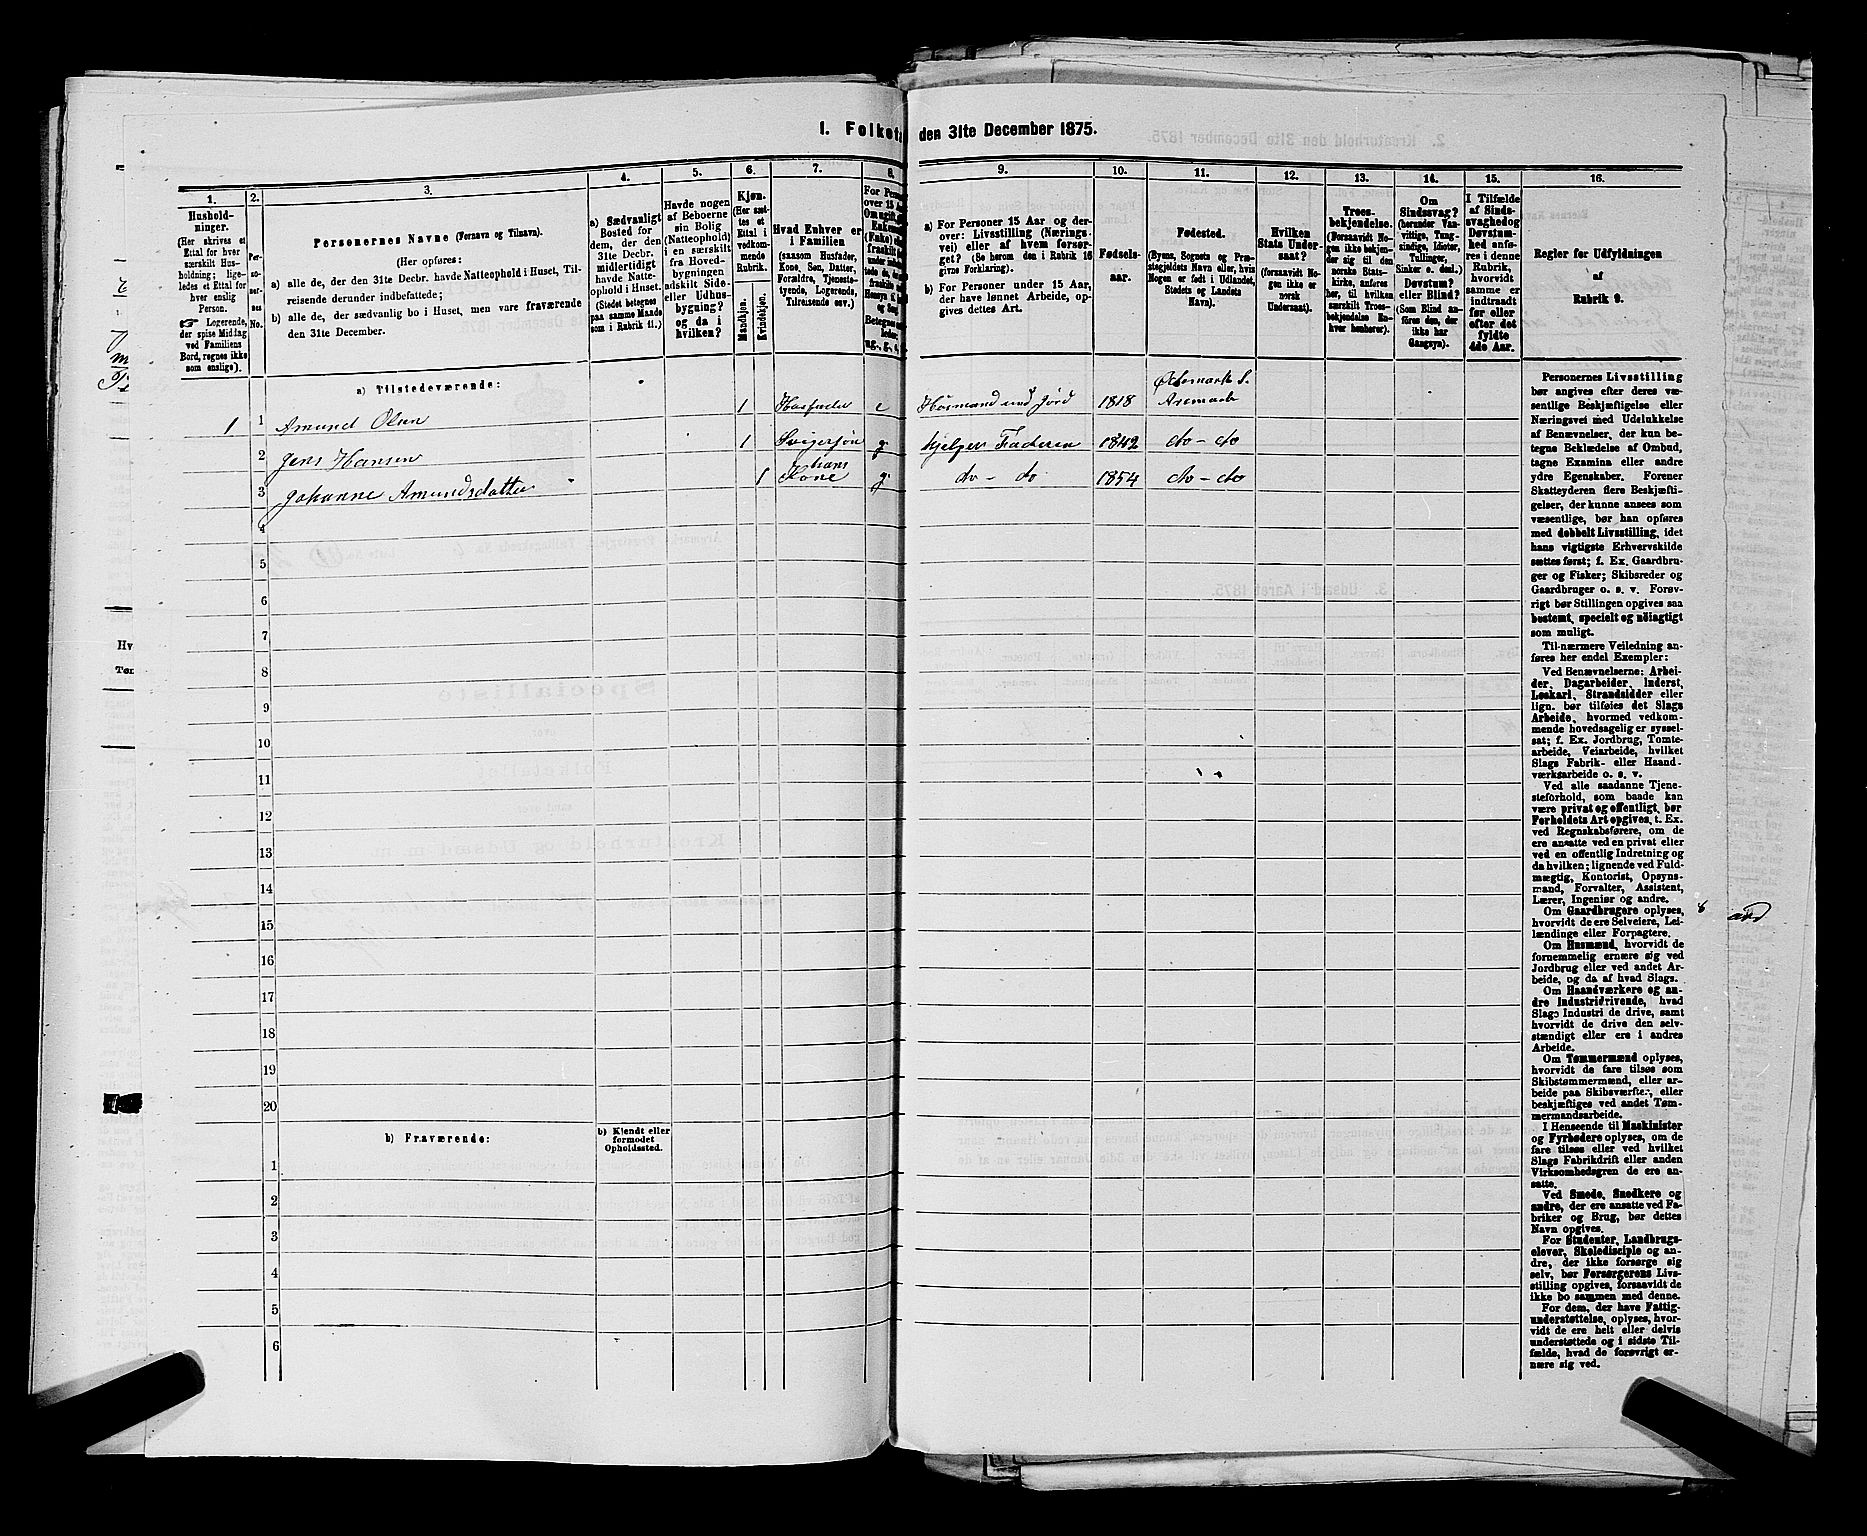 1. Folketæ
den 31te December 1875.
1.
2.
3.
4.
5.
6.
7.
8.
9.
10.
11.
12.
13.
14.
15.
16.
Hushold-
ninger.
(Her skrives et
Ettal for hver
særskilt Hus-
holdning; lige-
ledes et Ettal for
hver enslig
Person.
Logerende,
der spise Middag
ved Familiens
Bord, regnes ikke
som enslige).
Per-
so-
ner-
nes
No.
Personernes Navne (Fornavn og Tilnavn).
(Her opføres:
a) alle de, der den 31te Decbr. havde Natteophold i Huset, Til-
reisende derunder indbefattede;
b) alle de, der sædvanlig bo i Huset, men vare fraværende
den 31te December.
a) Sædvanligt
Bosted for
dem, der den
31te Decbr.
midlertidigt
havde Natte-
ophold i Huset.
(Stedet betegnes
paa samme Maade
som i Rubrik 11.)
Havde nogen
af Beboerne
sin Bolig
(Natteophold)
i en særskilt
fra Hoved-
bygningen
adskilt Side-
eller Udhus-
bygning?
og da i
hvilken?
Kjøn.
(Her sæt-
tes et
Ettal i
vedkom-
mende
Rubrik.
Mandkjøn.
Kvindekjøn.
Hvad Enhver er
i Familien
(saasom Husfader,
Kone, Søn, Datter,
Forældre, Tjeneste-
tyende, Logerende,
Tilreisende osv.)
a) For Personer 15 Aar og der-
over: Livsstilling (Nærings-
vei) eller af hvem forsør-
get? (Se herom den i Rubrik 16
givne Forklaring).
b) For Personer under 15 Aar,
der have lønnet Arbeide, op-
gives dettes Art.
Fødsels-
aar.
Fødested.
(Byens, Sognets og Præ-
stegjeldets Navn eller, hvis
Nogen er født i Udlandet,
Stedets og Landets
Navn).
Hvilken
Stats Under-
saat?
(forsaavidt No-
gen ikke er
norsk
Undersaat).
Troes-
bekjendelse.
(Forsaavidt No-
gen ikke bekjen-
der sig til den
norske Stats-
kirke, anføres
her, til hvilken
særskilt Troes-
bekjendelse En-
hver henhører).
Om
Sindssvag?
(herunder Van-
vittige, Tung-
sindige, Idioter,
Tullinger,
Sinker o. desl.)
Døvstum?
eller Blind?
(Som Blind an-
føres den, der
ikke har
Gangsyn).
I Tilfælde
af Sinds-
svaghed og
Døvstum-
hed anfø-
res i denne
Rubrik,
hvorvidt
samme er
indtraadt
før eller
efter det
fyldte
4de Aar.
Regler for Udfyldningen
af
Rubrik 9.
a) Tilstedeværende:
1 1 Amund Olsen 1 Husfader e Husmand med Jord 1818 Aremark
2 Jens Hansen 1 Svigersøn g hjelper Faderen 1842 do - do
hans
3 Johanne Amundsdatter 1 Kone g do - do 1854 do - do
4
5
6
7
8
9
10
11
12
13
14
15
16
17
18
19
20
b) Fraværende:
b) Kjendt eller
formodet
Opholdssted.
1
2
3
4
5
6
Personernes Livsstilling
bør angives efter deres væ-
sentlige Beskjæftigelse eller
Næringsvei med Udelukkelse
af Benævnelser, der kun be-
tegne Beklædelse af Ombud,
tagne Examina eller andre
ydre Egenskaber. Forener
Skatteyderen flere Beskjæfti-
gelser, der kunne ansees som
væsentlige, bør han opføres
med dobbelt Livsstilling, idet
hans vigtigste Erhvervskilde
sættes først; f. Ex. Gaardbru-
ger og Fisker; Skibsreder og
Gaardbruger o. s. v. Forøv-
rigt bør Stillingen opgives saa
bestemt, specielt og nøiagtigt
som muligt.
Til nærmere Veiledning an-
føres her endel Exempler:
Ved Benævnelserne: Arbei-
der, Dagarbeider, Inderst,
Løskarl, Strandsidder eller
lign. bør tilføies det Slags
Arbeide, hvormed vedkom-
mende hovedsagelig er syssel-
sat; f. Ex. Jordbrug, Tomte-
arbeide, Veiarbeide, hvilket
Slags Fabrik- eller Haand-
værksarbeide o. s. v.
Ved alle saadanne Tjene-
steforhold, som baade kan
være privat og offentligt, bør
Forholdets Art opgives, t. Ex.
ved Regnskabsførere, om de
ere ansatte ved en privat eller
ved en offentlig Indretning og
da hvilken; lignende ved Fuld-
mægtig, Kontorist, Opsyns-
mand, Forvalter, Assistent,
Lærer, Ingeniør og andre.
Om Gaardbrugere oplyses,
hvorvidt de ere Selveiere, Lei-
lændinge eller Forpagtere.
Om Husmænd, hvorvidt de
fornemmelig ernære sig ved
Jordbrug eller ved andet Ar-
beide, og da af hvad Slags.
Om Haandværkere og an-
dre Industridrivende, hvad
Slags Industri de drive, samt
hvorvidt de drive den selv-
stændigt eller ere i andres
Arbeide.
Om Tømmermænd oplyses,
hvorvidt de fare tilsøs som
Skibstømmermænd, eller ar-
beide paa Skibsværfter, eller
beskjæftiges ved andet Tøm-
mermandsarbeide.
I Henseende til Maskinister
og Fyrbødere oplyses, om de
fare tilsøs eller ved hvilket
Slags Fabrikdrift eller anden
Virksomhedsgren de ere an-
satte.
Ved Smede, Snedkere og
andre, der ere ansatte ved Fa-
briker og Brug, bør dettes
Navn opgives.
For Studenter, Landbrugs-
elever, Skoledisciple og an-
dre, der ikke forsørge sig
selv, bør Forsørgerens Livs-
stilling opgives, forsaavidt de
ikke bo sammen med denne.
For dem, der have Fattig-
understøttelse, oplyses, hvor-
vidt de ere helt eller delvis
understøttede og i sidste Til-
fælde, hvad de forøvrigt er-
nære sig ved.